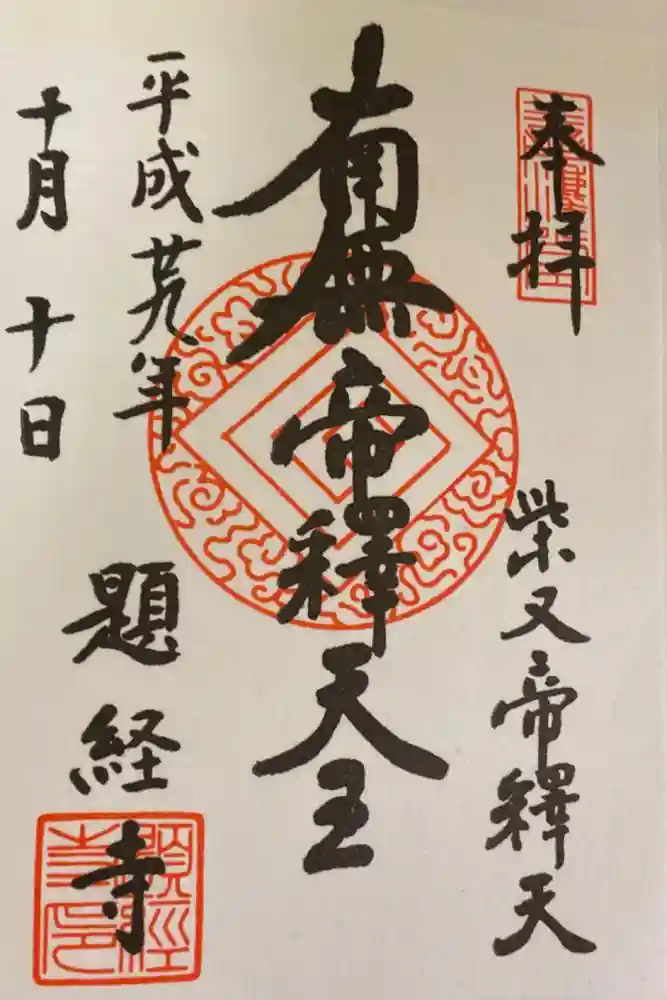 奉拝
柴又帝釋天
南無帝釋天王
平成廿九年
十月十日
題経寺